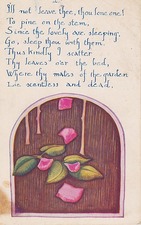 I'll not leave thee, thou lone one!
To pine on the stem,
Since the lovely are sleeping,
Go, sleep thou with them.
Thus kindly I scatter
Thy leaves o'er the bed,
Where thy mates of the garden
Lie scentless and dead.